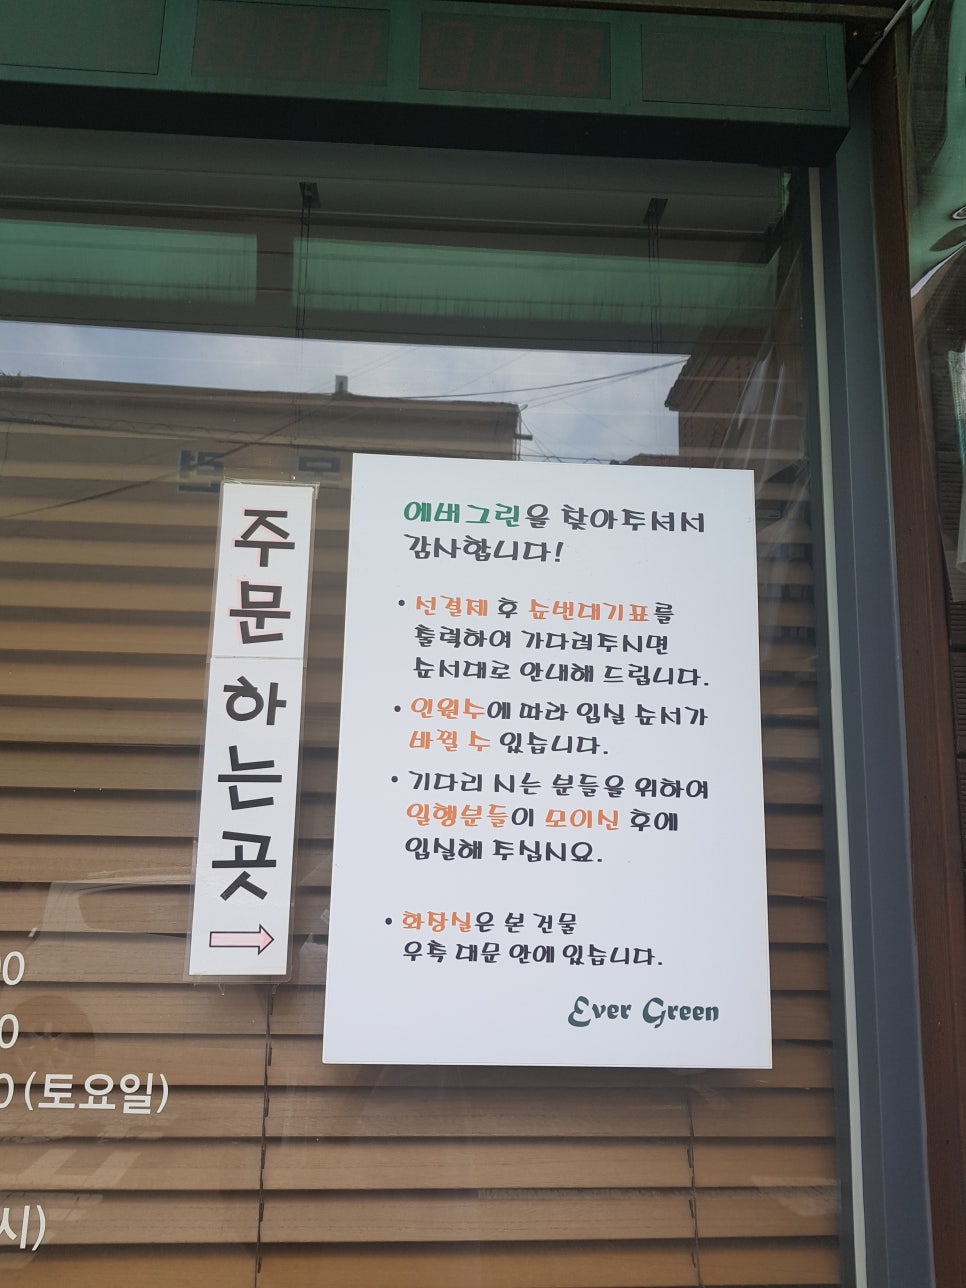 주문하는곳
에버그린을 찾아주셔서
감사합니다!
• 선결제 후 순번대기표를
출력하여 기다려주시면
순서대로 안내해 드립니다.
• 인원수에 따라 입실 순서가
바뀔 수 있습니다.
• 기다리시는 분들을 위하여
일행분들이 모이신 후에
입실해 주십시요.
• 화장실은 본 건물
우측 대문 안에 있습니다.
Ever Green
0
0
0 (토요일)
시)